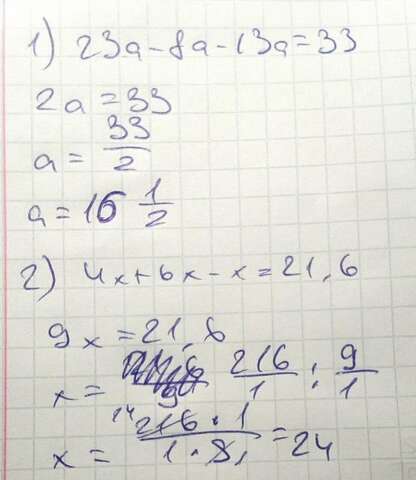 1) 23a - 8a - 13a = 33
2a = 33
a = 33/2
a = 16 1/2
2) 4x + 6x - x = 21,6
9x = 21,6
x = 216/1 : 9/1
x = 216 · 1 / 1 · 9 = 24